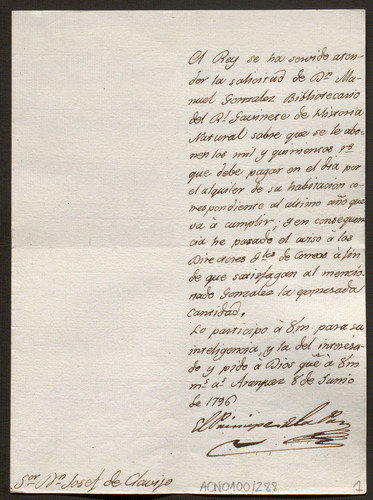 El Rey se ha servido aten-
der la solicitud de Dn. Ma-
nuel Gonzalez Bibliotecario
del Rl. Gavinete de Historia
Natural sobre que se le abo-
nen los mil y quinientos rs.
que debe pagar en el dia por
el alquiler de su habitacion co-
rrespondiente al ultimo año que
va à cumplir; y en consequen-
cia he pasado el aviso à los
Directores Gles. de Correos à fin
de que satisfagan al mencio-
nado Gonzalez la expresada
cantidad.
Lo participo à Vm. para su
inteligencia, y la del interesa-
do y pido à Dios gue. à Vm
ms. as. Aranjuez 8 de Junio
de 1796
El Principe de la Paz
Sor. Dn. Josef de Clavijo
ACN0100/288
1